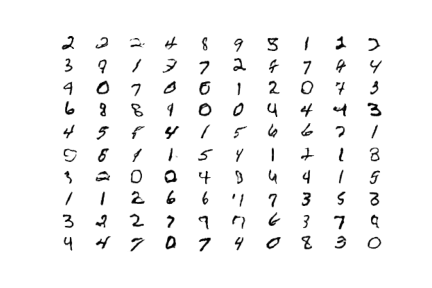 2 2 2 4 8 9 5 1 2 2
3 9 1 3 7 2 8 7 9 4
9 0 7 0 0 1 2 0 7 3
6 8 8 9 0 0 4 4 4 3
4 5 5 4 1 5 6 6 2 1
0 6 9 1 5 4 1 2 1 8
3 2 0 0 4 8 4 4 1 5
1 1 2 6 6 4 7 3 5 8
3 2 2 7 9 7 6 3 7 9
4 4 7 0 7 4 0 8 3 0